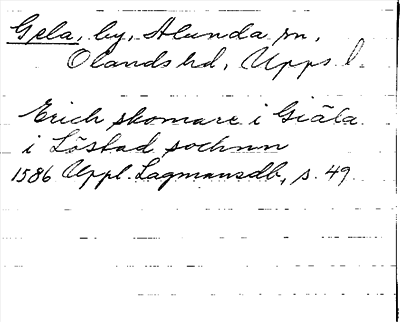 Gela, by, Alunda sn,
Olands hd, Upps. l.
Erich skomare i Giäla
i Löstad sochnn
1586 Uppl. Lagmansdb, s. 49.